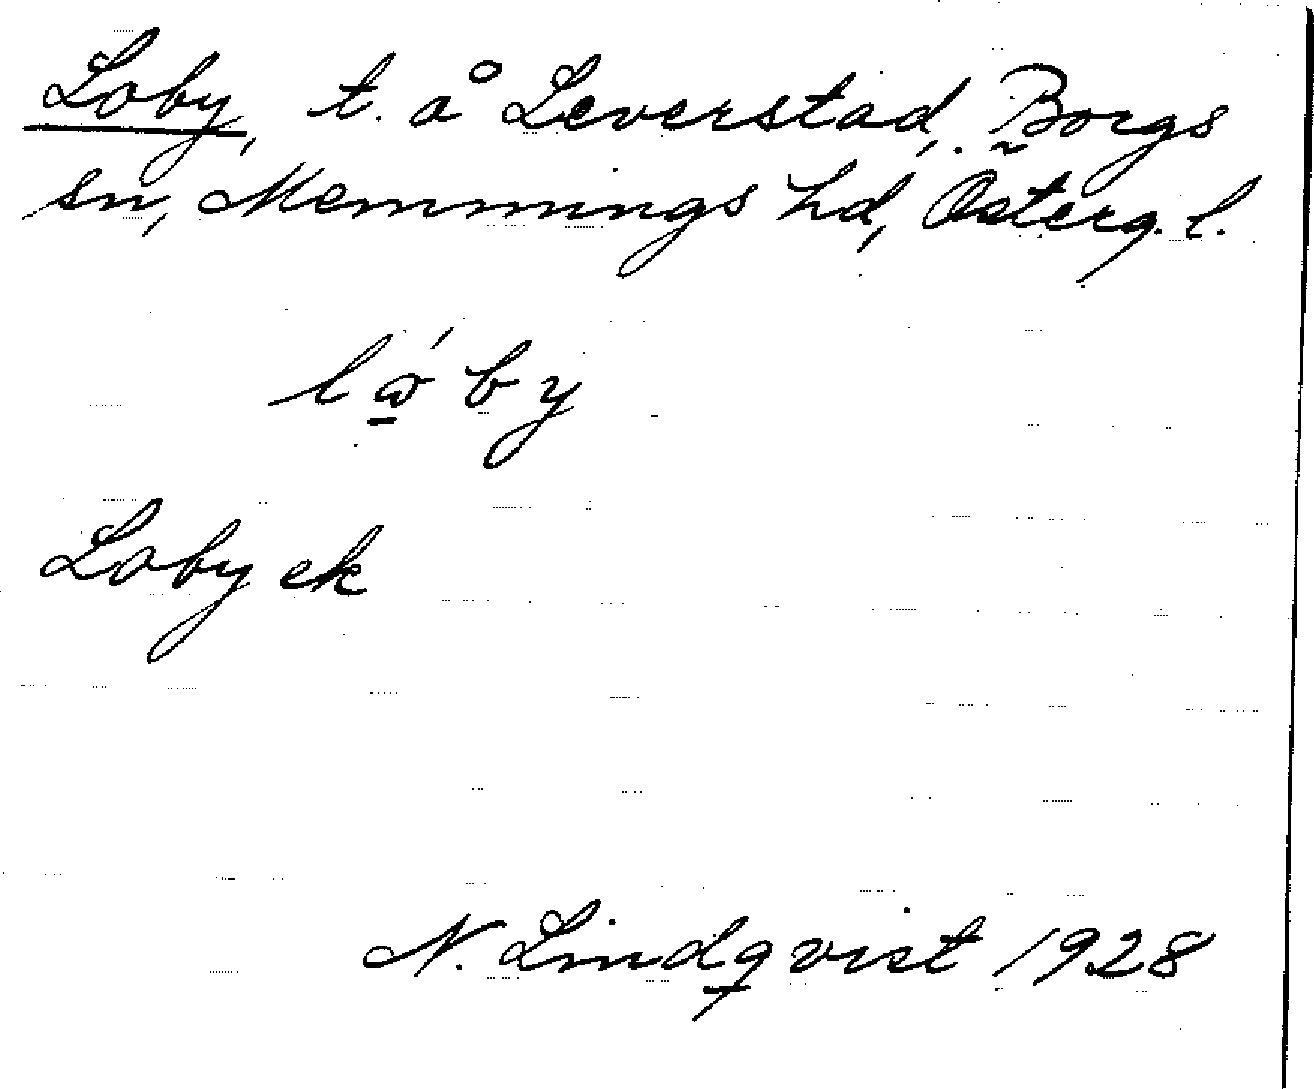 Loby, t. å Leverstad, Borgs
sn, Memmings hd, Österg. l.
lǫ́by
Loby ek
N. Lindqvist 1928